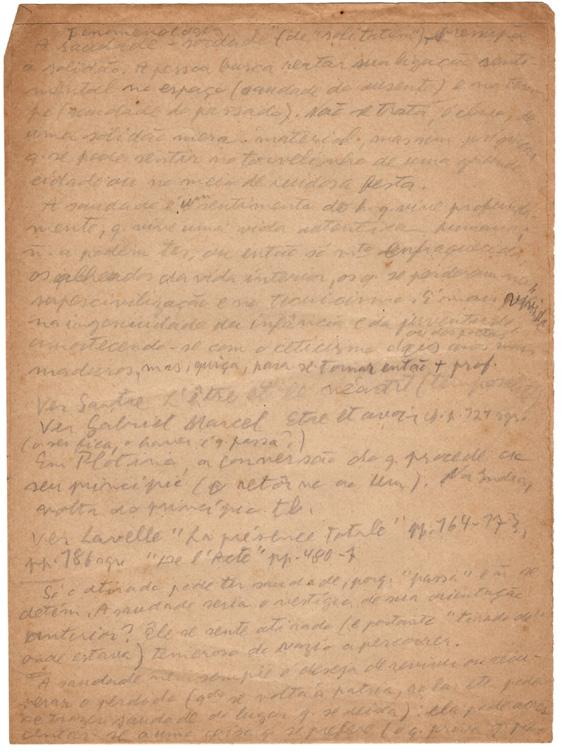 Fenomenologia
A saudade - soidade" (de "solitatem") pressupõe
a solidão. A pessoa busca reatar sua ligação senti-
mental no espaço (saudade do ausente) e no tem-
po (saudade do passado). Não se trata, é claro, de
uma solidão mera material, mas
q. se pode sentir no torvelinho de uma grande
cidade ou no meio de ruidosa festa.
A saudade é um sentimento do h. q. vive profunda-
mente, q. vive uma vida autêntica humana,
ñ. a podem ter, ou então só mto enfraquecida,
os alheados da vida interior, os q. se perderam na
supercivilização e no tecnicismo. É mais vívida
na ingenuidade da infância e da juventude,
amortecendo-se com o ceticismo dos anos mais
maduros, mas, quiçá, para se tornar então + prof.
Ver Sartre L'être et le néant
Ver Gabriel Marcel Etre et avoir
(o ser fica, o haver é q. passa?)
Em Plotino, a conversão do q. procede ao
seu princípio (o retorno ao Um). Na Índia,
volta ao princípio tb.
Ver Lavelle "La présence totale" pp. 164-173,
pp. 186 "De l'Acte" pp. 480-1
Só o atirado pode ter saudade, porq. "passa" e ñ se
detém. A saudade seria o vestígio de sua orientação
anterior? Ele se sente atirado (e portanto "tirado de"
onde estava) temeroso do vazio a percorrer.
A saudade nem sempre o deseja de reviver ou recu-
perar o perdido (qdo se volta à pátria, ao lar etc pode-
se trazer saudade do lugar q. se deixa): ela pode
a uma coisa q. se prefere